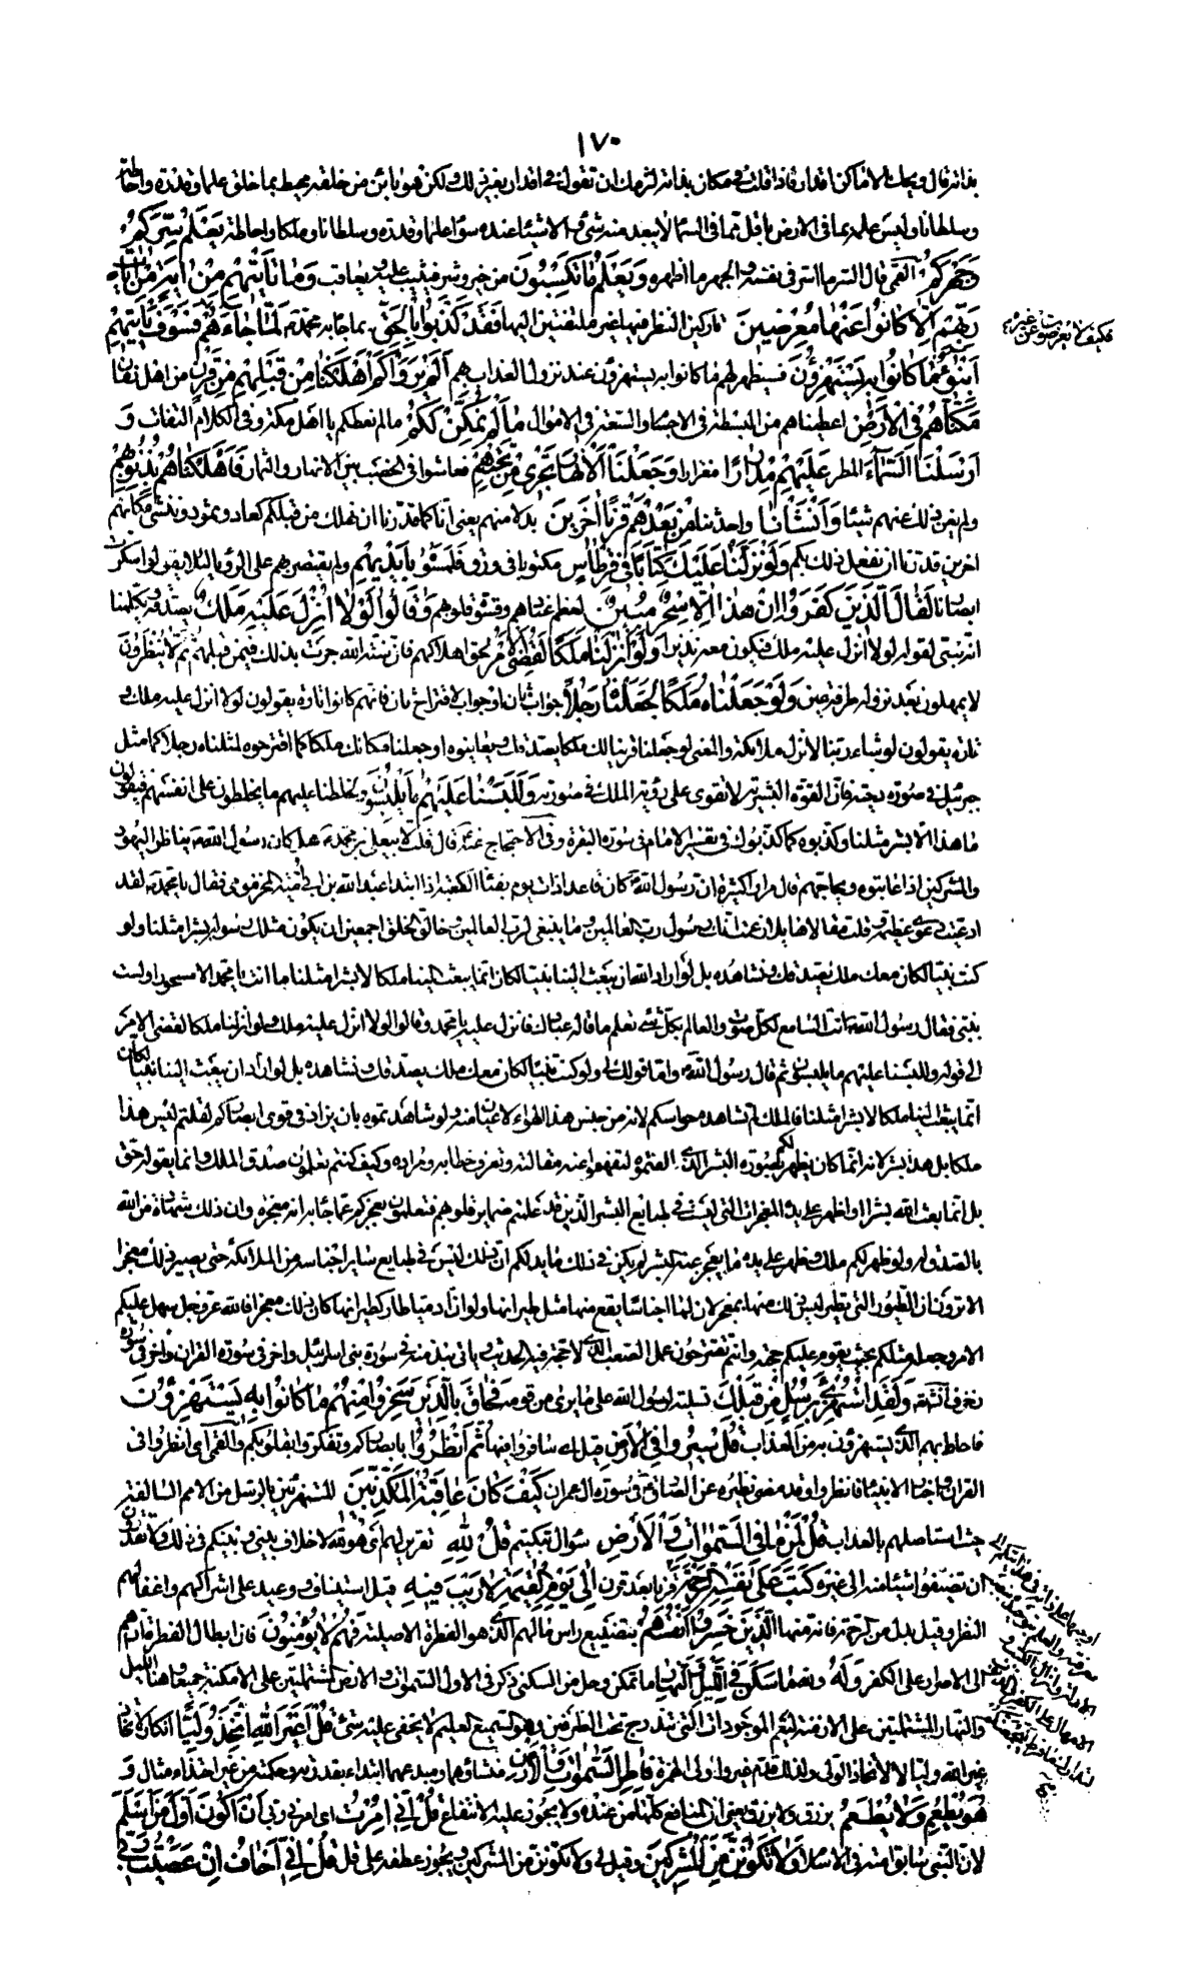 ١٧٠
بذاته قال ويحك الاماكن اقدار فاذا قلت في مكان بذاته لزمك ان تقول في اقدار وغير ذلك ولكن هو بائن من خلقه محيط بما خلق علما وقدرة واحاطة
وسلطانا وليس علمه بما في الارض باقل مما في السماء لا يبعد منه شيء والاشياء عنده سواء علما وقدرة وسلطانا وملكا واحاطة يَعْلَمُ سِرَّكُمْ
وَجَهْرَكُمْ القمي قال السر ما اسر في نفسه والجهر ما اظهره وَيَعْلَمُ مَا تَكْسِبُونَ من خير وشر فيثيب عليه ويعاقب وَمَا تَأْتِيهِمْ مِنْ آيَةٍ مِنْ آيَاتِ
رَبِّهِمْ إِلَّا كَانُوا عَنْهَا مُعْرِضِينَ تاركين النظر فيها غير ملتفتين اليها فَقَدْ كَذَّبُوا بِالْحَقِّ بما جاء به محمد لَمَّا جَاءَهُمْ فَسَوْفَ يَأْتِيهِمْ
أَنْبَاءُ مَا كَانُوا بِهِ يَسْتَهْزِؤُنَ فسيظهر لهم ما كانوا به يستهزؤن عند نزول العذاب بهم أَلَمْ يَرَوْا كَمْ أَهْلَكْنَا مِنْ قَبْلِهِمْ مِنْ قَرْنٍ من اهل زمان
مَكَّنَّاهُمْ فِي الْأَرْضِ اعطيناهم من البسطة في الاجسام والسعة في الاموال مَا لَمْ نُمَكِّنْ لَكُمْ ما لم نعطكم يا اهل مكة وفي الكلام التفات وَ
أَرْسَلْنَا السَّمَاءَ المطر عَلَيْهِمْ مِدْرَارًا مغزارا وَجَعَلْنَا الْأَنْهَارَ تَجْرِي مِنْ تَحْتِهِمْ فعاشوا في الخصب بين الانهار والثمار فَأَهْلَكْنَاهُمْ بِذُنُوبِهِمْ
ولم يغن ذلك عنهم شيئا وَأَنْشَأْنَا واحدثنا مِنْ بَعْدِهِمْ قَرْنًا آخَرِينَ بدلا منهم يعني انا كما قدرنا ان نهلك من قبلكم كعاد وثمود وننشئ مكانهم
اخرين قدرنا ان نفعل ذلك بكم وَلَوْ نَزَّلْنَا عَلَيْكَ كِتَابًا فِي قِرْطَاسٍ مكتوبا في ورق فَلَمَسُوهُ بِأَيْدِيهِمْ ولم يقتصر بهم على الرؤية لئلا يقولوا سكرت
ابصارنا لَقَالَ الَّذِينَ كَفَرُوا إِنْ هَذَا إِلَّا سِحْرٌ مُبِينٌ لعظم عنادهم وقسوة قلوبهم وَقَالُوا لَوْلَا أُنْزِلَ عَلَيْهِ مَلَكٌ يصدقه يكلمنا
انه نبي لقوله لولا انزل عليه ملك فيكون معه نذيرا وَلَوْ أَنْزَلْنَا مَلَكًا لَقُضِيَ الْأَمْرُ لحق اهلاكهم فان سنة الله جرت بذلك فيمن قبلهم ثُمَّ لَا يُنْظَرُونَ
لا يمهلون بعد نزوله طرفة عين وَلَوْ جَعَلْنَاهُ مَلَكًا لَجَعَلْنَاهُ رَجُلًا جواب ثان او جواب لاقتراح ثان فانهم كانوا تارة يقولون لولا انزل عليه ملك و
تارة يقولون لو شاء ربنا لانزل ملائكة والمعنى لو جعلنا قرينا لك ملكا يصدقك ويعاينوه او جعلنا مكانك ملكا كما اقترحوه لمثلناه رجلا كما مثل
جبرئيل في صورة دحية فان القوة البشرية لا تقوى على رؤية الملك في صورته وَلَلَبَسْنَا عَلَيْهِمْ مَا يَلْبِسُونَ ولخلطنا عليهم ما يخلطون على انفسهم فيقولون
ما هذا الا بشر مثلنا وكذبوه كما كذبوك في تفسير الامام في سورة البقرة وفي الاحتجاج عنه قال قلت لابي علي بن محمد هل كان رسول الله يناظر اليهود
والمشركين اذا عاتبوه ويحاجهم قال مرارا كثيرة ان رسول الله كان قاعدا ذات يوم بفناء الكعبة اذ ابتدا عبد الله بن ابي امية المخزومي فقال يا محمد لقد
ادعيت دعوى عظيمة وقلت مقالا هائلا زعمت انك رسول رب العالمين وما ينبغي لرب العالمين وخالق الخلق اجمعين ان يكون مثلك رسوله بشرا مثلنا ولو
كنت نبيا لكان معك ملك يصدقك ونشاهده بل لو اراد الله ان يبعث الينا نبيا لكان انما يبعث الينا ملكا لا بشرا مثلنا ما انت يا محمد الا مسحورا ولست
بنبي فقال رسول الله انت السامع لكل صوت والعالم بكل شيء تعلم ما قاله عبادك فانزل عليه يا محمد وقالوا لولا انزل عليه ملك ولو انزلنا ملكا لقضي الامر
الى قوله وللبسنا عليهم ما يلبسون ثم قال رسول الله واما قولك لي ولو كنت نبيا لكان معك ملك يصدقك ونشاهده بل لو اراد ان يبعث الينا نبيا لكان
انما يبعث الينا ملكا لا بشرا مثلنا فالملك لم تشاهده حواسكم لانه من جنس هذا الهواء لا عيان منه ولو شاهدتموه بان يزاد في قوى ابصاركم لقلتم ليس هذا
ملكا بل هذا بشر لانه انما كان يظهر لكم بصورة البشر الذي الفتموه لتفهموا عنه مقالته وتعرفوا خطابه ومراده وكيف كنتم تعلمون صدق الملك وان ما يقوله حق
بل انما بعث الله بشرا واظهر على يده المعجزات التي ليست في طبايع البشر الذين قد علمتم ضماير قلوبهم فتعلمون بعجزكم عما جاء به انه معجزة وان ذلك شهادة من الله
بالصدق له ولو ظهر لكم ملك وظهر على يده ما يعجز عنه البشر لم يكن في ذلك ما يدلكم ان ذلك ليس في طبايع ساير اجناسه من الملائكة حتى يصير ذلك معجزا
الا ترون ان الطيور التي تطير ليس ذلك منها بمعجز لان لها اجناسا يقع منها مثل طيرانها ولو ان ادميا طار كطيرانها كان ذلك معجزا فالله عز وجل سهل عليكم
الامر وجعله مثلكم بحيث يقوم عليكم حجته وانتم تقترحون عمل الصعب الذي لا حجة فيه الحديث وياتي نبذ منه في سورة بني اسرائيل واخر في سورة الفرقان واخر في سورة
الزخرف انشاء الله وَلَقَدِ اسْتُهْزِئَ بِرُسُلٍ مِنْ قَبْلِكَ تسلية لرسول الله على ما يرى من قومه فَحَاقَ بِالَّذِينَ سَخِرُوا مِنْهُمْ مَا كَانُوا بِهِ يَسْتَهْزِؤُنَ
فاحاط بهم الذي يستهزؤن به من العذاب قُلْ سِيرُوا فِي الْأَرْضِ قيل اي سافروا فيها ثُمَّ انْظُرُوا بابصاركم وتفكروا بقلوبكم والقمي اي انظروا في
القران واخبار الانبياء فانظروا وقد مضى نظيره عن الصادق في سورة ال عمران كَيْفَ كَانَ عَاقِبَةُ الْمُكَذِّبِينَ المستهزئين بالرسل من الامم السالفة
حيث استاصلهم بالعذاب قُلْ لِمَنْ مَا فِي السَّمَوَاتِ وَالْأَرْضِ سؤال تبكيت قُلْ لِلَّهِ تقرير لهم اي هو لله لا خلاف بيني وبينكم في ذلك ولا تقدرون
ان تضيفوا شيئا منه الى غيره كَتَبَ عَلَى نَفْسِهِ الرَّحْمَةَ لَيَجْمَعَنَّكُمْ قرنا بعد قرن إِلَى يَوْمِ الْقِيَمَةِ لَا رَيْبَ فِيهِ قيل استيناف وعيد على اشراكهم واغفالهم
النظر وقيل بدل من الرحمة فانه منها الَّذِينَ خَسِرُوا أَنْفُسَهُمْ بتضييع راس مالهم الذي هو الفطرة الاصلية فَهُمْ لَا يُؤْمِنُونَ فان ابطال الفطرة اداهم
الى الاصرار على الكفر وَلَهُ مَا سَكَنَ فِي اللَّيْلِ وَالنَّهَارِ ما تمكن وحل من السكنى ذكر في الاول السموات والارض المشتملتين على الامكنة جميعا وهنا الليل
والنهار المشتملين على الازمنة ليعم الموجودات التي تندرج تحت الظرفين وَهُوَ السَّمِيعُ الْعَلِيمُ لا يخفى عليه شيء قُلْ أَغَيْرَ اللَّهِ أَتَّخِذُ وَلِيًّا انكار لاتخاذ
غير الله وليا لا لاتخاذ الولي ولذلك قدم غير واولي الهمزة فَاطِرِ السَّمَوَاتِ وَالْأَرْضِ منشاؤهما ومبدعهما ابتداء بقدرته وحكمته من غير احتذاء مثال وَ
هُوَ يُطْعِمُ وَلَا يُطْعَمُ يرزق ولا يرزق يعني ان المنافع كلها من عنده ولا يجوز عليه الانتفاع قُلْ إِنِّي أُمِرْتُ اي امرني ربي أَنْ أَكُونَ أَوَّلَ مَنْ أَسْلَمَ
لان النبي سابق امته في الاسلام وَلَا تَكُونَنَّ مِنَ الْمُشْرِكِينَ وقيل لي ولا تكونن من المشركين ويجوز عطفه على قل قُلْ إِنِّي أَخَافُ إِنْ عَصَيْتُ رَبِّي
فكيف لا يعرضون عن غيره